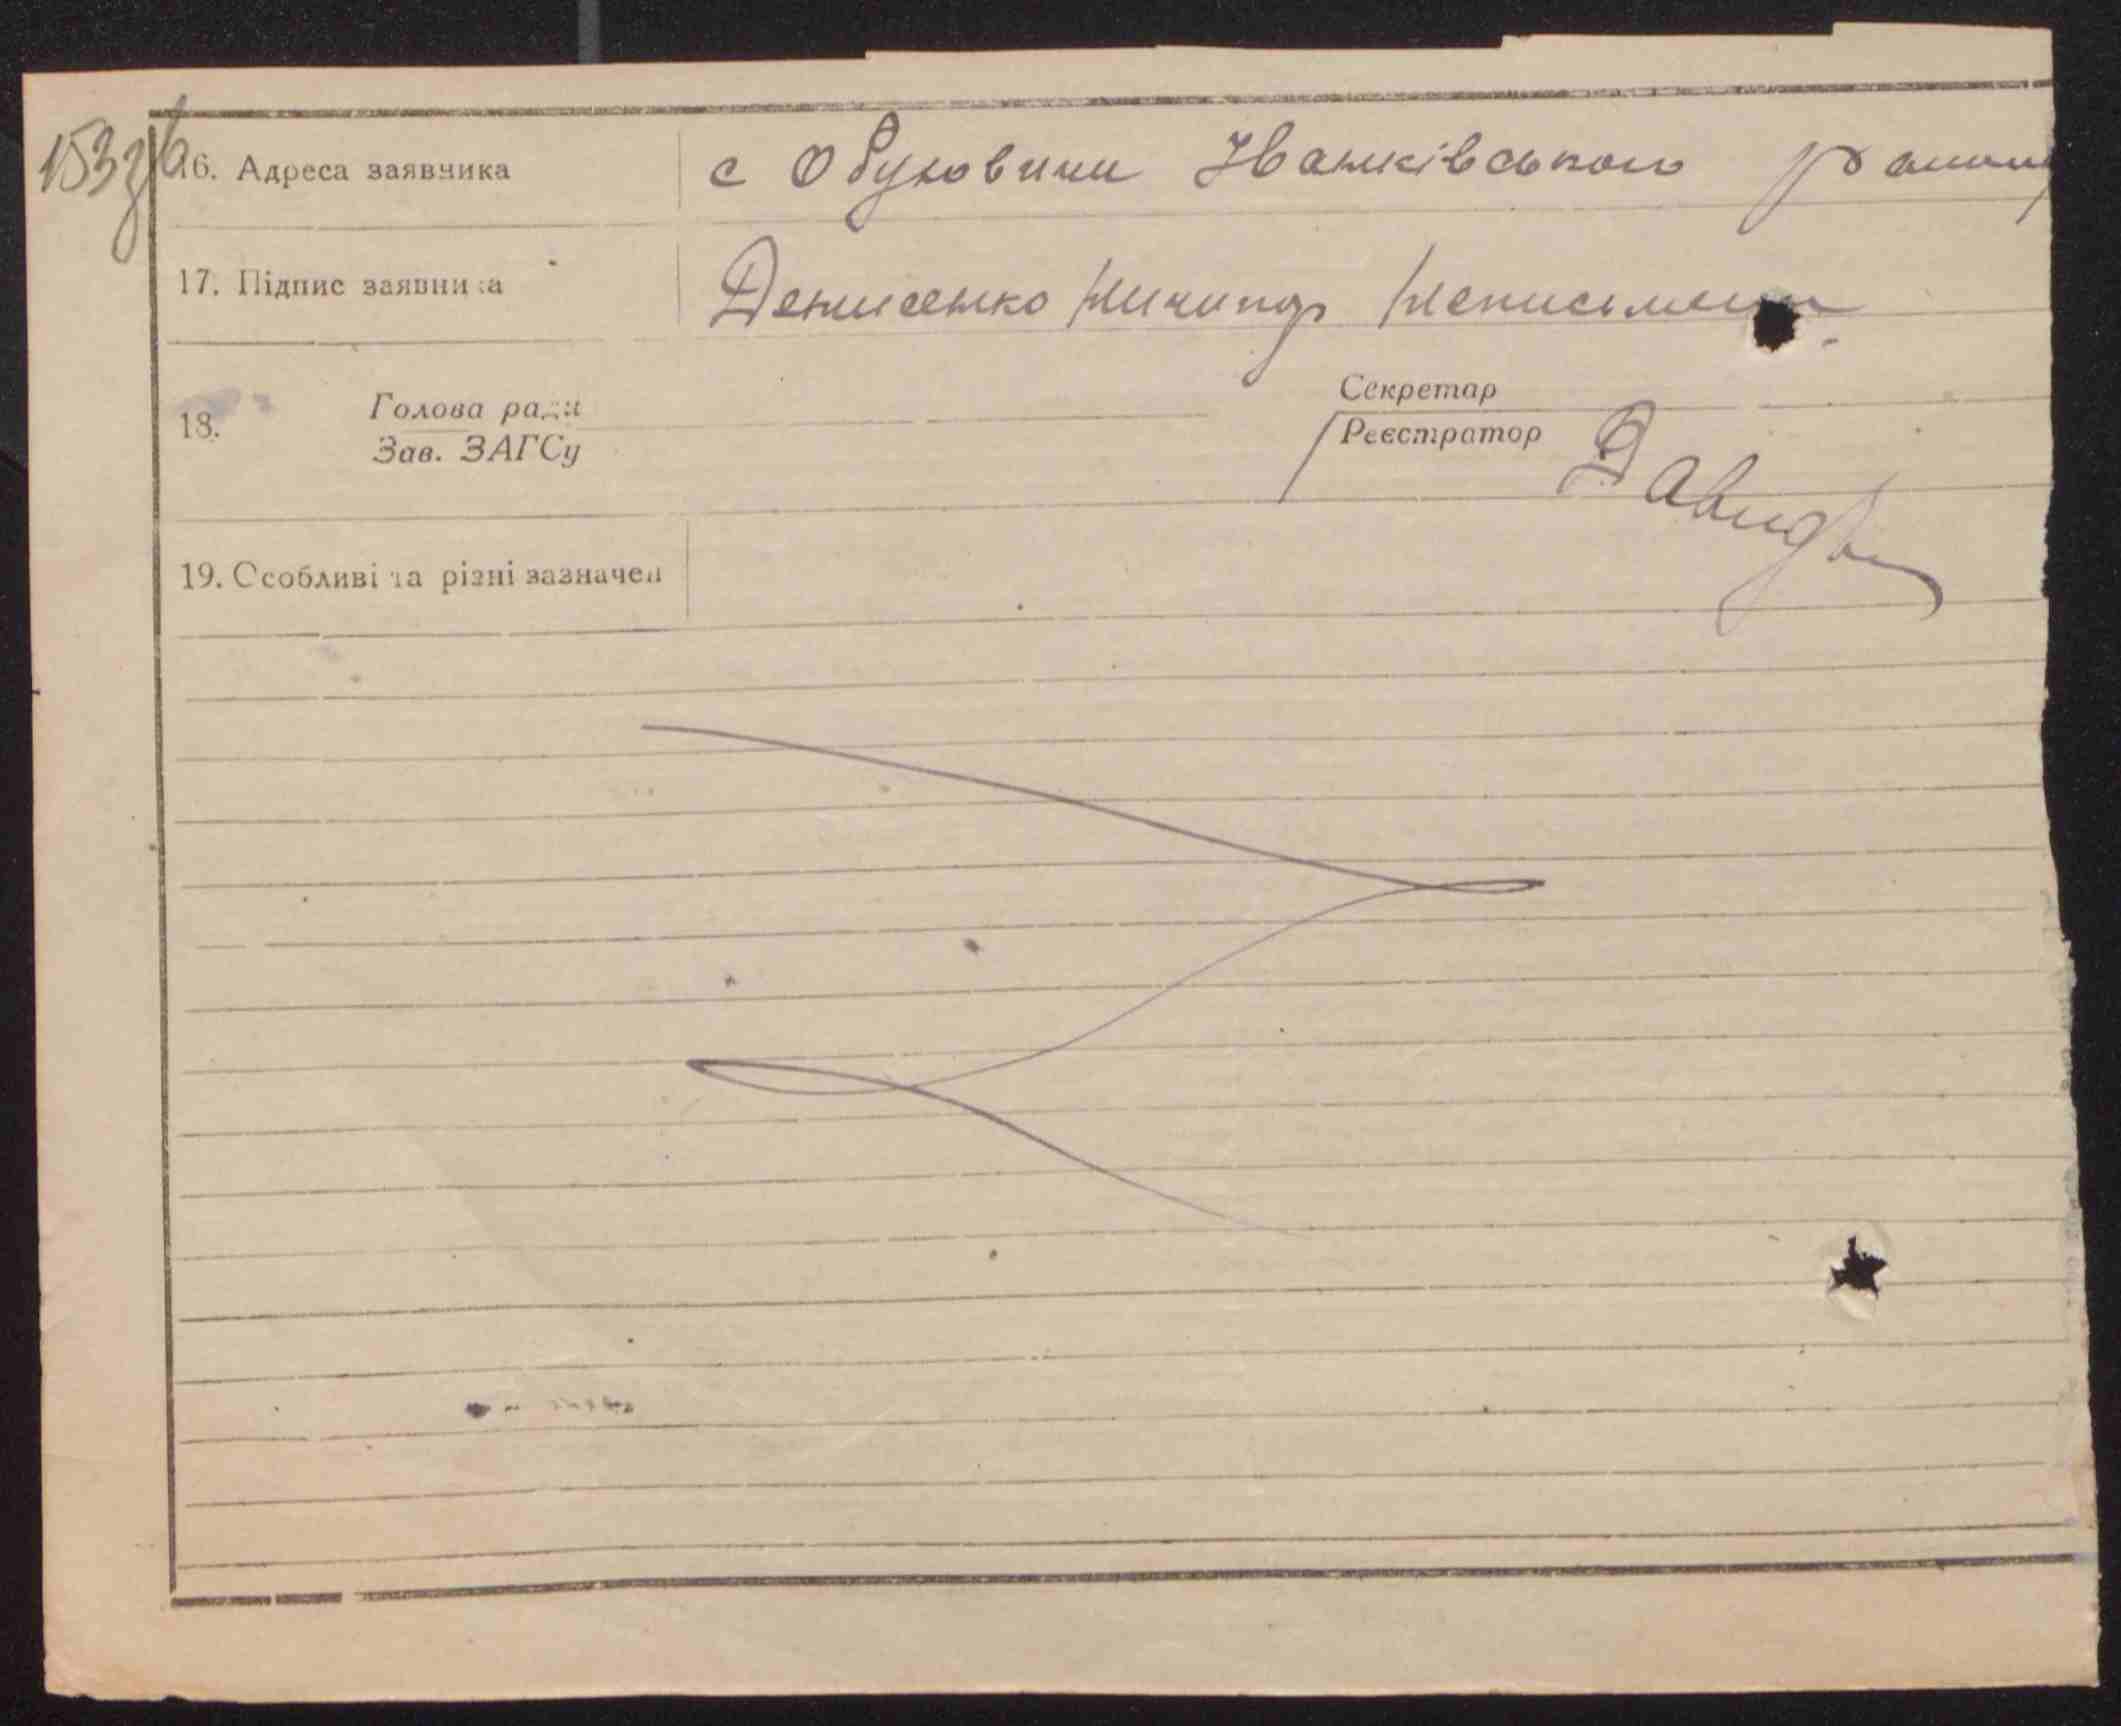 153 зб
16. Адреса заявника с Обуховичи Іванківського району
17. Підпис заявника Денисенко Ничипор Неписьмен
18. Голова ради Секретар
Зав. ЗАГСу Реєстратор Давид
19. Особливі та різні зазначен